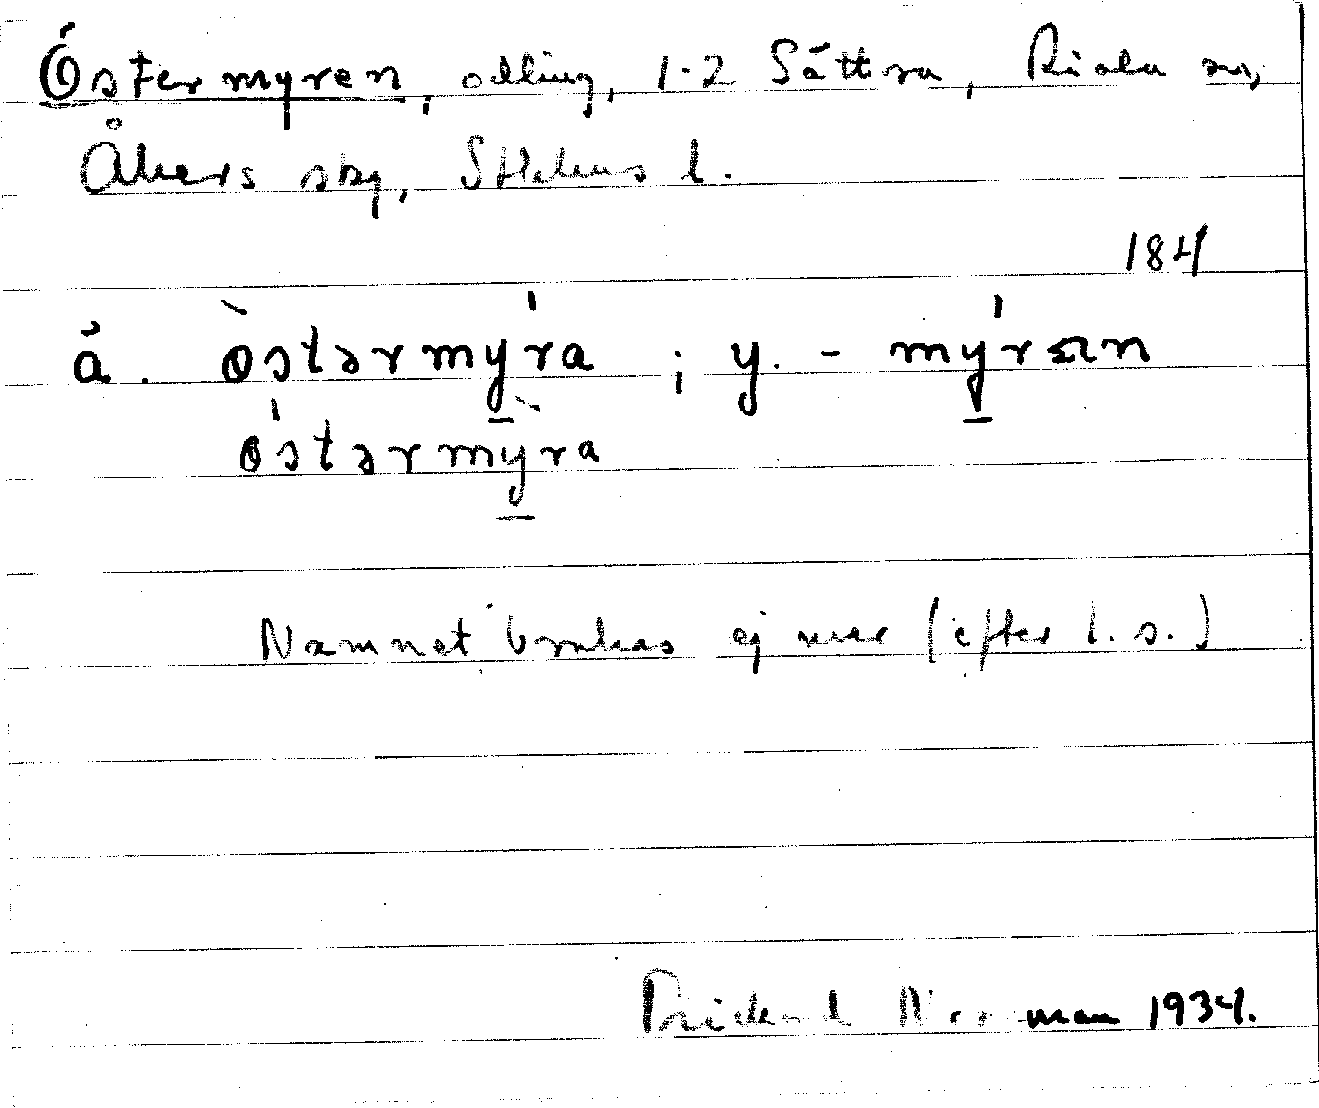 Östermyren, odling, 1-2 Sättra, Riala sn,
Åkers skg, Sthlms l.
184
ä. ö̀stərmý̱ra ; y. - mý̱ræn
ö́stərmỳ̱ra
Namnet brukas ej mer (efter l. s.)
Rickard Norman 1934.